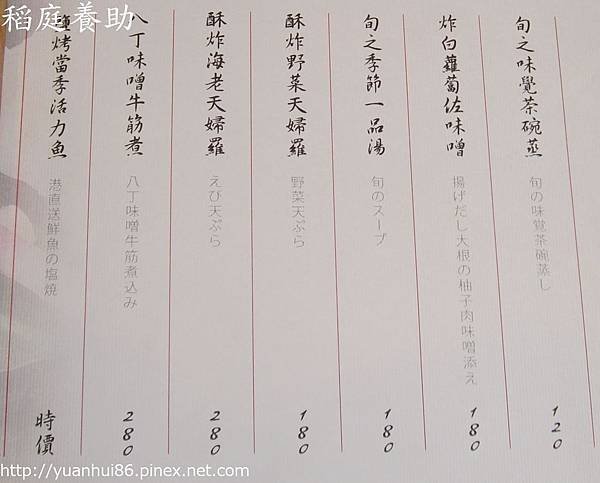 稻庭養助
旬之味覺茶碗蒸
旬の味覚茶碗蒸し
120
炸白蘿蔔佐味噌
揚げだし大根の柚子肉味噌添え
180
旬之季節一品湯
旬のスープ
180
酥炸野菜天婦羅
野菜天ぷら
180
酥炸海老天婦羅
えび天ぷら
280
八丁味噌牛筋煮
八丁味噌牛筋煮込み
280
鹽烤當季活力魚
港直送鮮魚の塩焼
時價
http://yuanhui86.pixnet.net